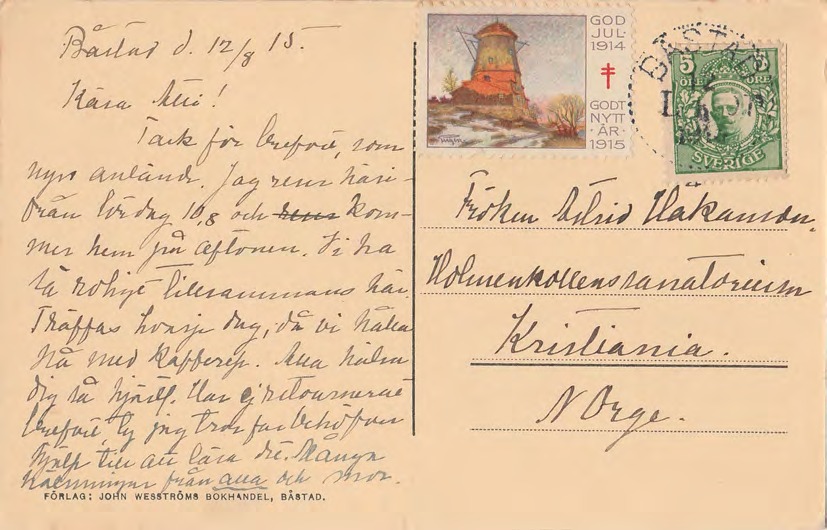 Båstad d. 12/8 15.
Kära
Tack för brefvet, som
nyss anländt. Jag reser häri-
från lördag och reser kom-
mer hem på aftonen. Vi ha
så roligt tillsammans här.
Träffas hvarje dag, då vi hålla
på med kafferep. Alla hälsa
dig så hjärtl. Har ej returnerat
brefvet, ty jag tror far behöfver
hjälp till att läsa det. Många
hälsningar från alla och mor.
FÖRLAG: JOHN WESSTRÖMS BOKHANDEL, BÅSTAD.
GOD
JUL
1914
GODT
NYTT
ÅR
1915
BÅSTAD
5 5
ÖRE
SVERIGE
Fröken Astrid Håkanson.
Holmenkollensanatorium
Kristiania.
Norge.